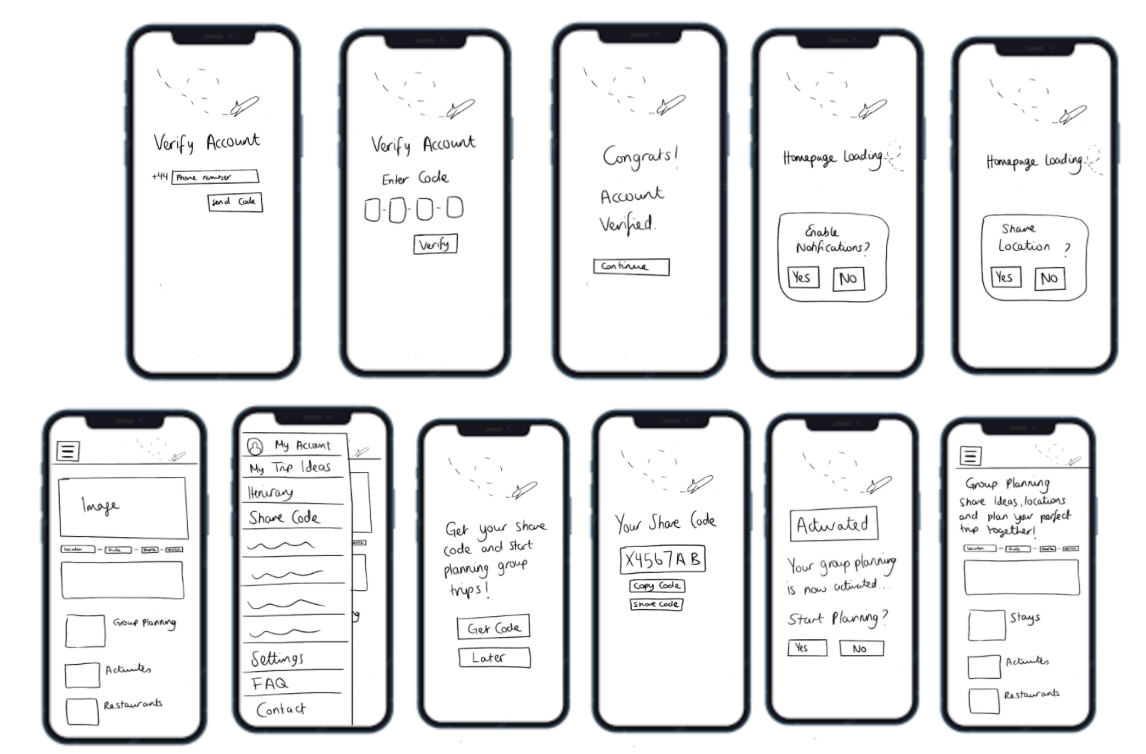 Verify Account
+44 Phone number
Send Code
Verify Account
Enter Code
Verify
Congrats!
Account
Verified.
Continue
Homepage Loading..
Enable
Notifications?
Yes
No
Homepage Loading..
Share
Location ?
Yes
No
Image
Location
Date
Group Planning
Activites
Restaurants
My Account
My Trip Ideas
Itenirary
Share Code
Settings
FAQ
Contact
Get your share
code and start
planning group
trips!
Get Code
Later
Your Share Code
X4567AB
Copy Code
Share Code
Activated
Your group planning
is now activated...
Start Planning?
Yes
No
Group Planning
share Ideas, locations
and plan your perfect
trip together!
Location
Date
Stays
Activites
Restaurants